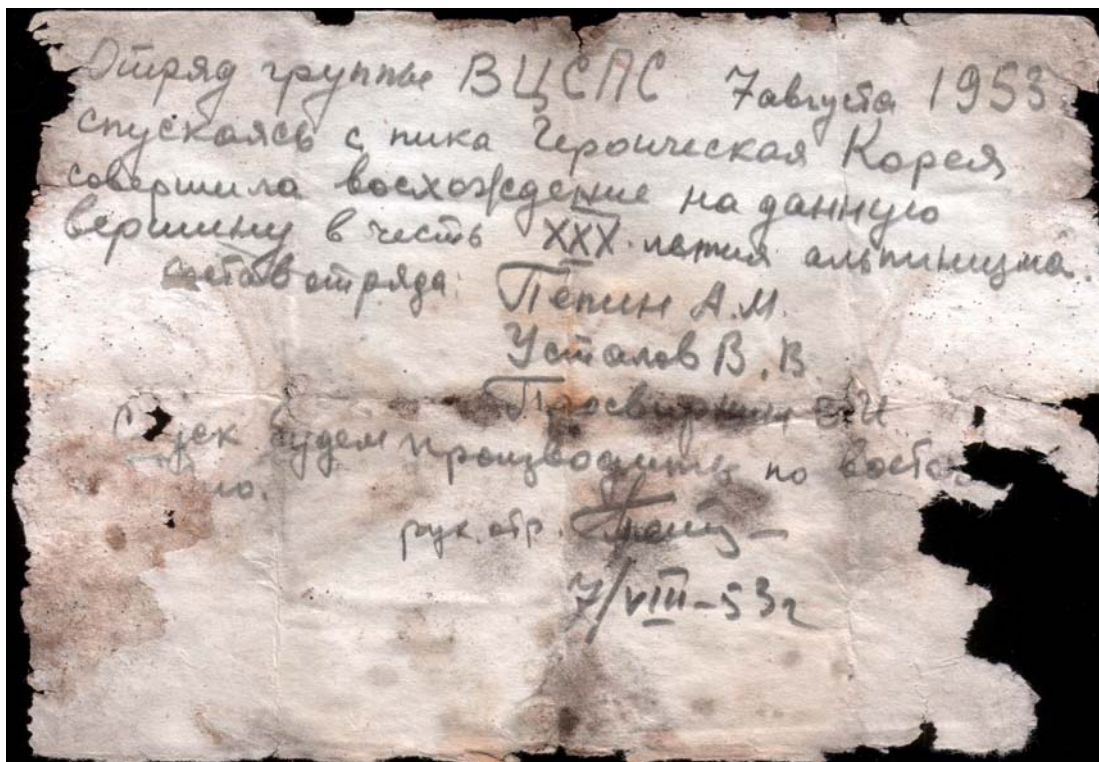 Отряд группы ВЦСПС 7 августа 1953
спускаясь с пика Героическая Корея
совершила восхождение на данную
вершину в честь XXX-летия альпинизма.
Состав отряда: Пепин А.М.
Усталов В.В.
Просвирнин Е.И.
будем производить по
рук. отр.
7/VIII-53г